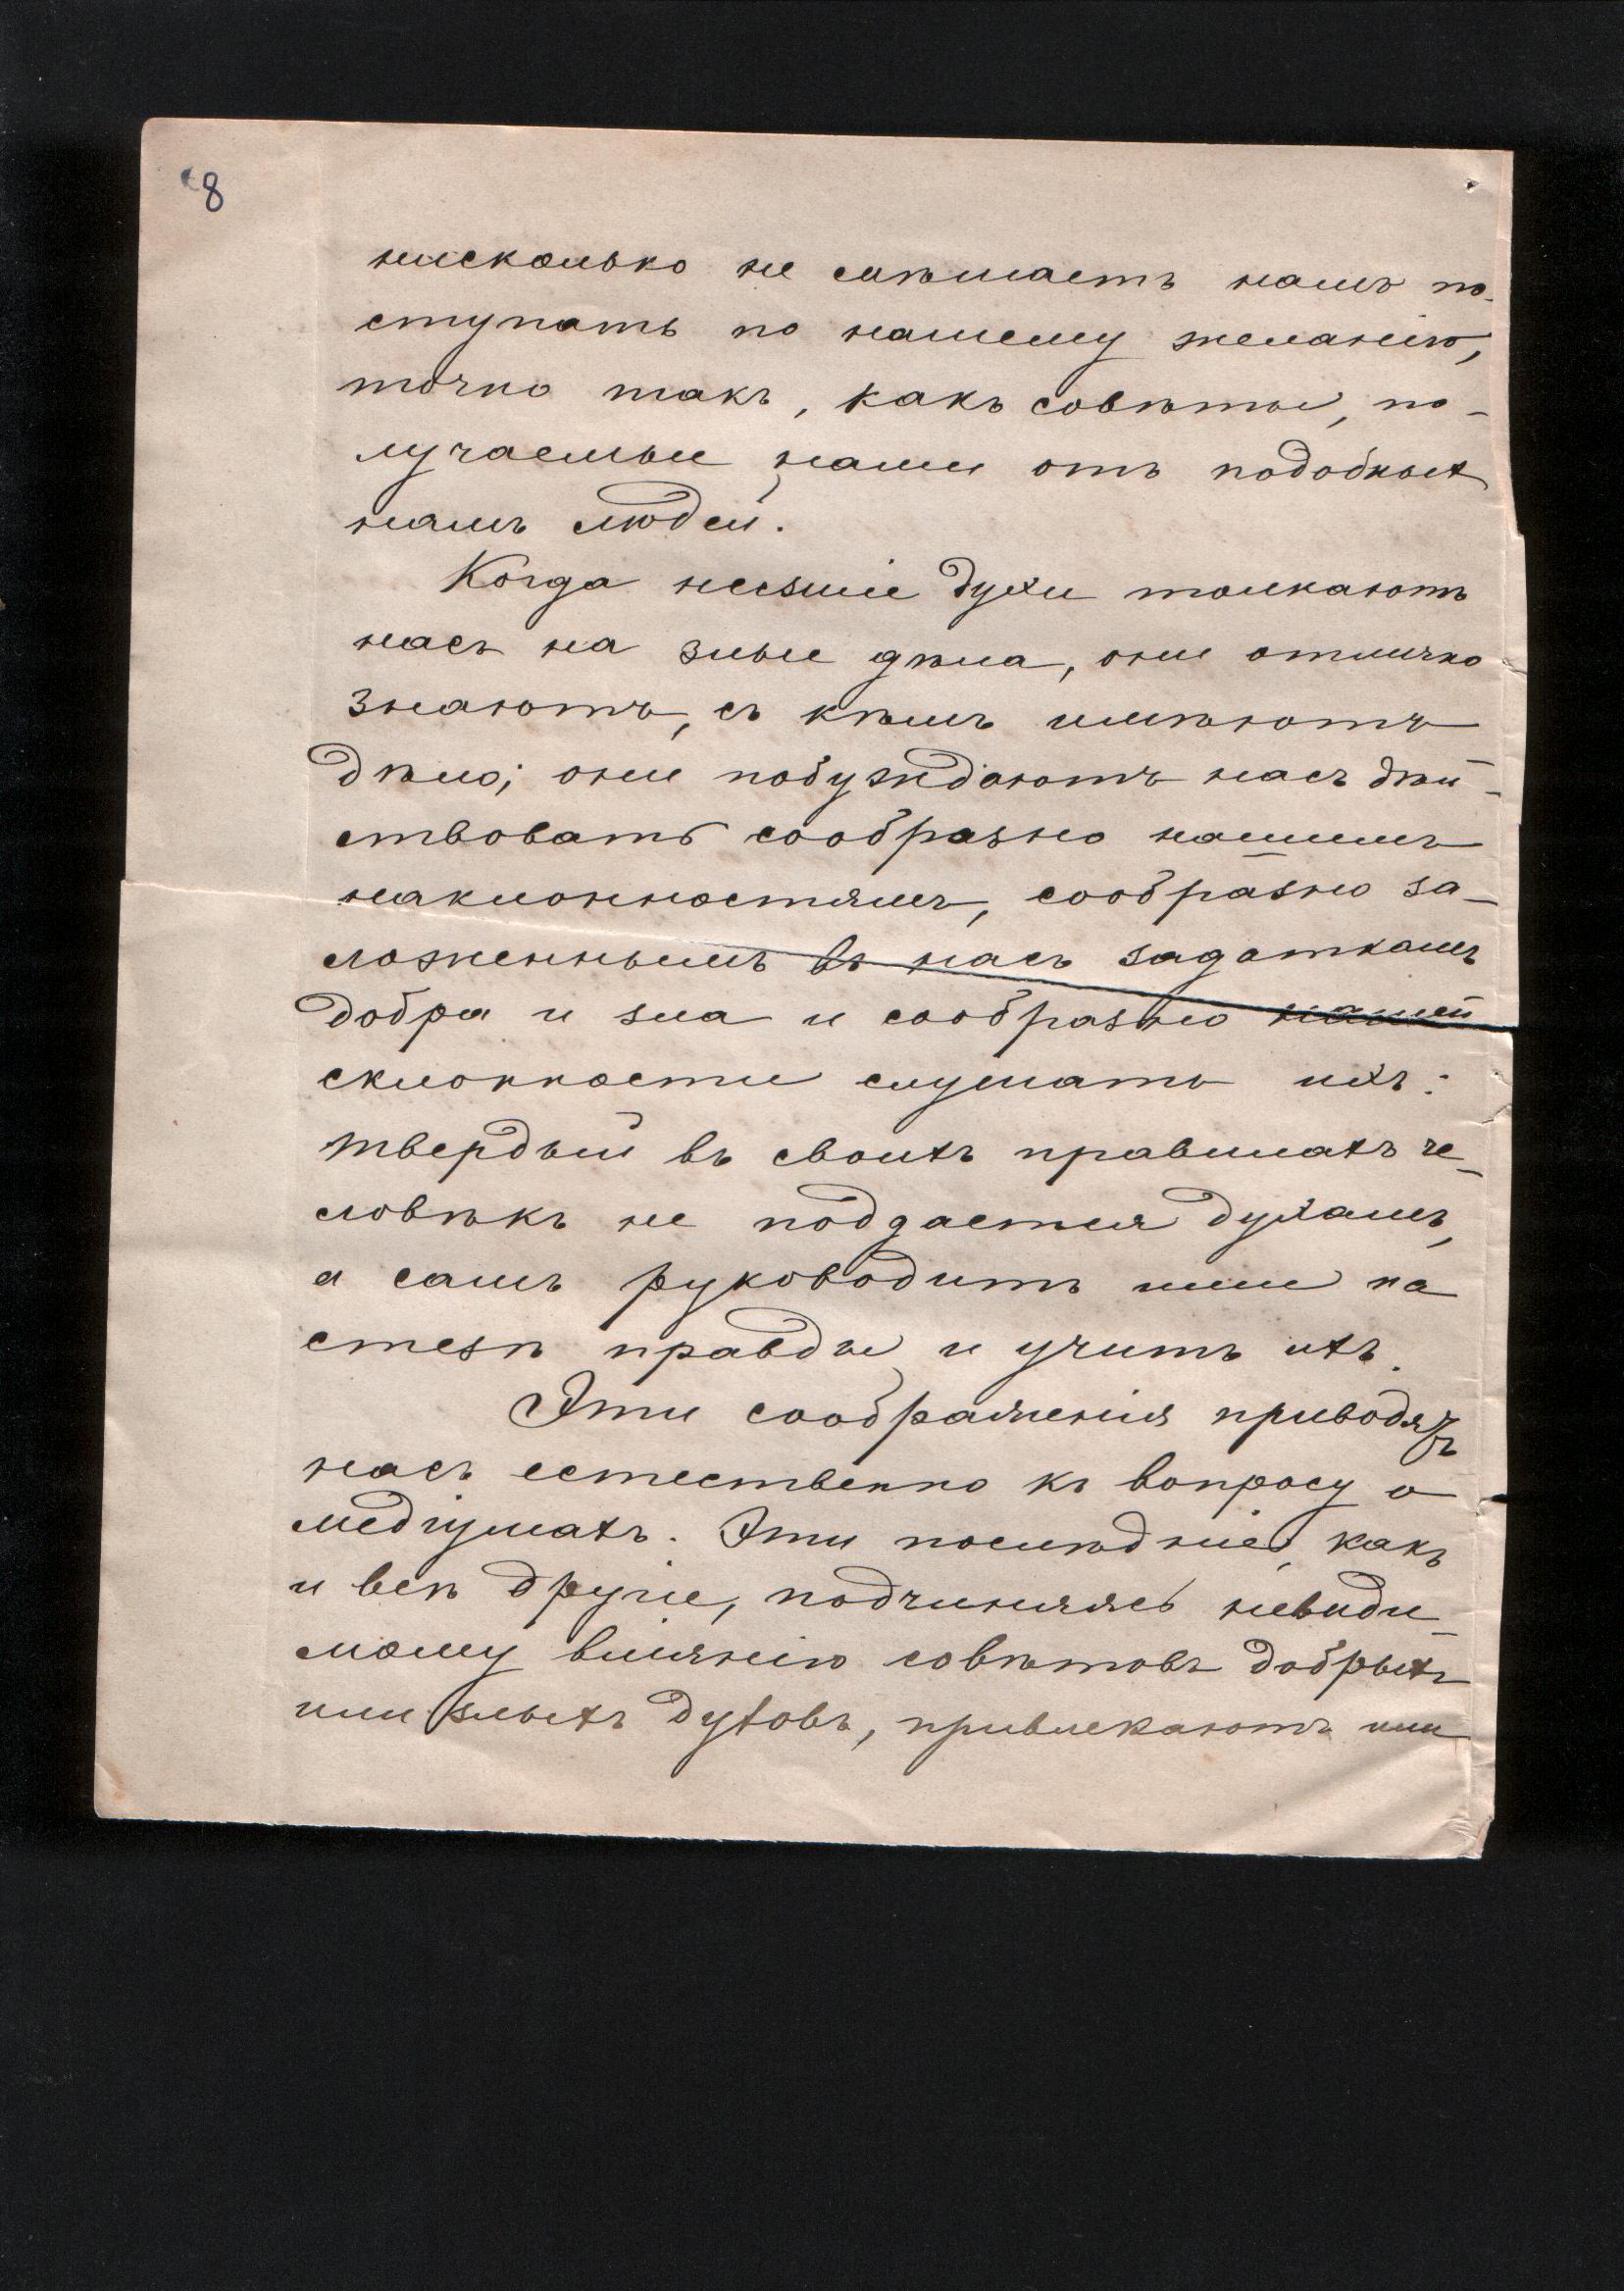 8
нисколько не мѣшаетъ намъ по-
ступать по нашему желанію,
точно такъ, какъ совѣты, по-
лучаемые нами отъ подобныхъ
намъ людей.
Когда низшіе духи толкаютъ
насъ на злые дѣла, они отлично
знаютъ, съ кѣмъ имѣютъ
дѣло; они побуждаютъ насъ дѣй-
ствовать сообразно нашимъ
наклонностямъ, сообразно за-
ложеннымъ въ насъ задаткамъ
добра и зла и сообразно нашей
склонности слушать ихъ:
твердый въ своихъ правилахъ че-
ловѣкъ не поддается духамъ,
а самъ руководитъ ими на
стезѣ правды и учитъ ихъ.
Эти соображенія приводятъ
насъ естественно къ вопросу о
медіумахъ. Эти послѣдніе, какъ
и всѣ другіе, подчиняясь невиди-
мому вліянію совѣтовъ добрыхъ
или злыхъ духовъ, привлекаютъ ими